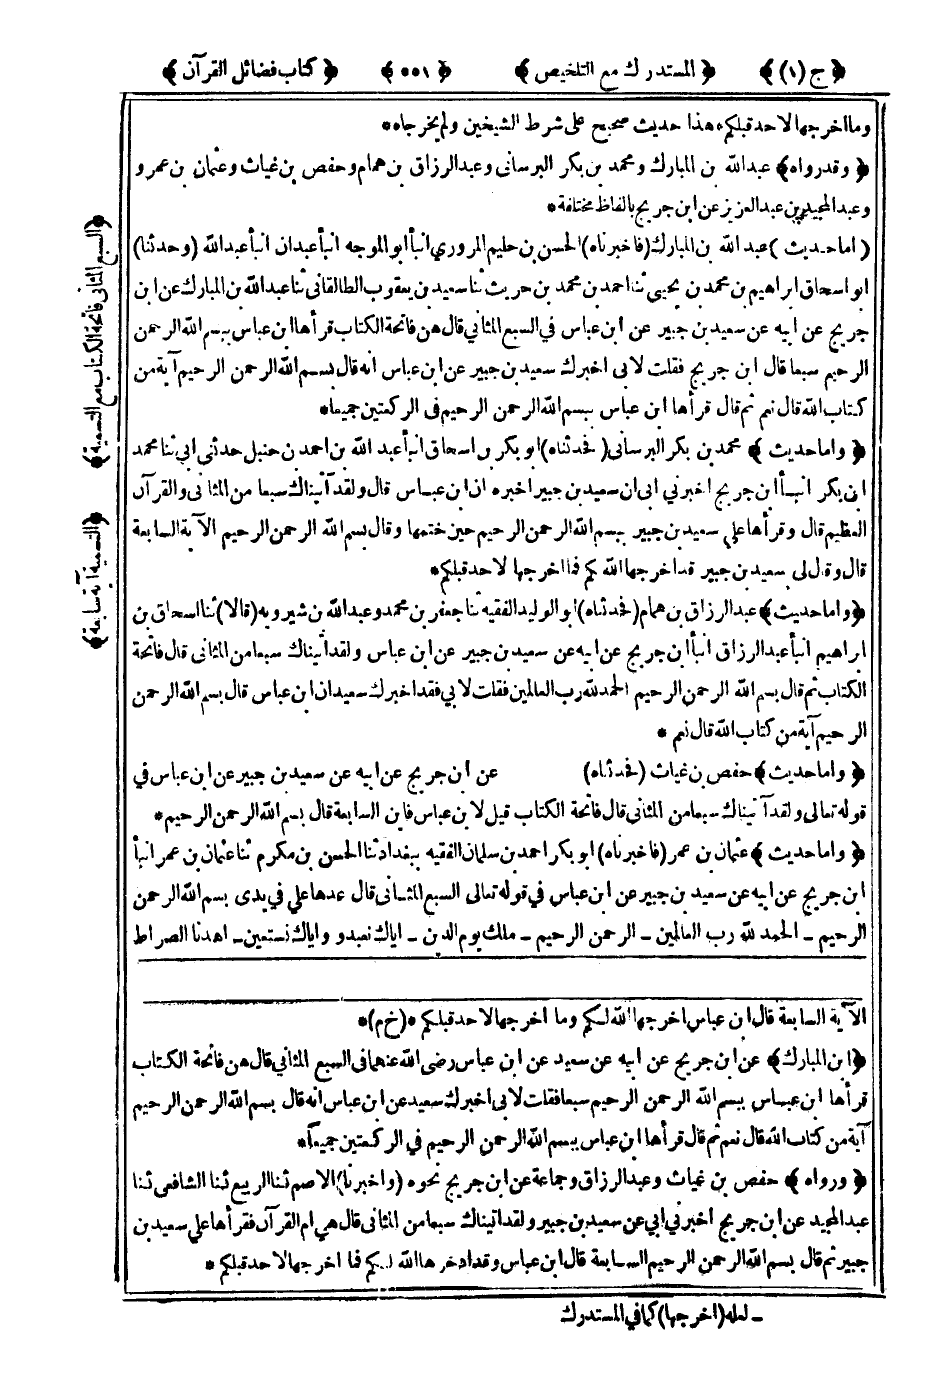 ﴿ ج (١) ﴾ ﴿ المستدرك مع التلخيص ﴾ ﴿ ٥٥١ ﴾ ﴿ كتاب فضائل القرآن ﴾
وما اخرجها لاحد قبلكم * هذا حديث صحيح على شرط الشيخين ولم يخرجاه *
﴿ وقد رواه ﴾ عبد الله بن المبارك و محمد بن بكر البرساني و عبد الرزاق بن همام و حفص بن غياث و عثمان بن عمر و
و عبد المجيد بن عبد العزيز عن ابن جريج بالفاظ مختلفة *
( اما حديث ) عبد الله بن المبارك (فاخبرناه) الحسن بن حليم المروزي انبأ ابو الموجه انبأ عبدان انبأ عبد الله (وحدثنا)
ابو اسحاق ابراهيم بن محمد بن يحيى ثنا احمد بن محمد بن حريث ثنا سعيد بن يعقوب الطالقاني ثنا عبد الله بن المبارك عن ابن
جريج عن ابيه عن سعيد بن جبير عن ابن عباس في السبع المثاني قال هن فاتحة الكتاب قرأها ابن عباس ببسم الله الرحمن
الرحيم سبعا قال ابن جريج فقلت لابى اخبرك سعيد بن جبير عن ابن عباس انه قال بسم الله الرحمن الرحيم آية من
كتاب الله قال نعم ثم قال قرأها ابن عباس ببسم الله الرحمن الرحيم فى الركعتين جميعا *
﴿ و اما حديث ﴾ محمد بن بكر البرسانى ( فحدثناه) ابو بكر بن اسحاق انبأ عبد الله بن احمد بن حنبل حدثنى ابي ثنا محمد
ابن بكر انبأ ابن جريج اخبرني ابى ان سعيد بن جبير اخبره ان ابن عباس قال ولقد آتيناك سبعا من المثانى والقرآن
العظيم قال وقرأها على سعيد بن جبير ببسم الله الرحمن الرحيم حين ختمها وقال بسم الله الرحمن الرحيم الآية السابعة
قال و قال لى سعيد بن جبير قد اخرجها الله لكم فما اخرجها لاحد قبلكم *
﴿ و اما حديث ﴾ عبد الرزاق بن همام (فحدثناه) ابو الوليد الفقيه ثنا جعفر بن محمد و عبد الله بن شيرويه (قالا) ثنا اسحاق بن
ابراهيم انبأ عبد الرزاق انبأ ابن جريج عن ابيه عن سعيد بن جبير عن ابن عباس ولقد آتيناك سبعا من المثانى قال فاتحة
الكتاب ثم قال بسم الله الرحمن الرحيم الحمد لله رب العالمين فقلت لابي فقد اخبرك سعيد ان ابن عباس قال بسم الله الرحمن
الرحيم آية من كتاب الله قال نعم *
﴿ و اما حديث ﴾ حفص بن غياث (فحدثناه) عن ابن جريج عن ابيه عن سعيد بن جبير عن ابن عباس في
قوله تعالى ولقد آتيناك سبعا من المثاني قال فاتحة الكتاب قيل لابن عباس فاين السابعة قال بسم الله الرحمن الرحيم *
﴿ و اما حديث ﴾ عثمان بن عمر (فاخبرناه) ابو بكر احمد بن سلمان الفقيه ببغداد ثنا الحسن بن مكرم ثنا عثمان بن عمر انبأ
ابن جريج عن ابيه عن سعيد بن جبير عن ابن عباس في قوله تعالى السبع المثانى قال عدها علي في يدى بسم الله الرحمن
الرحيم ـ الحمد لله رب العالمين ـ الرحمن الرحيم ـ ملك يوم الدين ـ اياك نعبد و اياك نستعين ـ اهدنا الصراط
الآية السابعة قال ابن عباس اخرجها الله لكم وما اخرجها لاحد قبلكم * (خ م) *
﴿ ابن المبارك ﴾ عن ابن جريج عن ابيه عن سعيد عن ابن عباس رضى الله عنهما فى السبع المثاني قال هن فاتحة الكتاب
قرأها ابن عباس ببسم الله الرحمن الرحيم سبعا فقلت لابى اخبرك سعيد عن ابن عباس انه قال بسم الله الرحمن الرحيم
آية من كتاب الله قال نعم ثم قال قرأها ابن عباس ببسم الله الرحمن الرحيم في الركعتين جميعا *
﴿ و رواه ﴾ حفص بن غياث و عبد الرزاق و جماعة عن ابن جريج نحوه (واخبرنا) الاصم ثنا الربيع ثنا الشافعى ثنا
عبد المجيد عن ابن جريج اخبرني ابي عن سعيد بن جبير ولقد آتيناك سبعا من المثانى قال هي ام القرآن فقرأها علي سعيد بن
جبير ثم قال بسم الله الرحمن الرحيم السابعة قال ابن عباس وقد ادخرها الله لكم فما اخرجها لاحد قبلكم *
ـ لعله (اخرجها) كما في المستدرك
﴿ السبع المثانى فاتحة الكتاب مع التسمية ﴾
﴿ التسمية آية سابعة ﴾